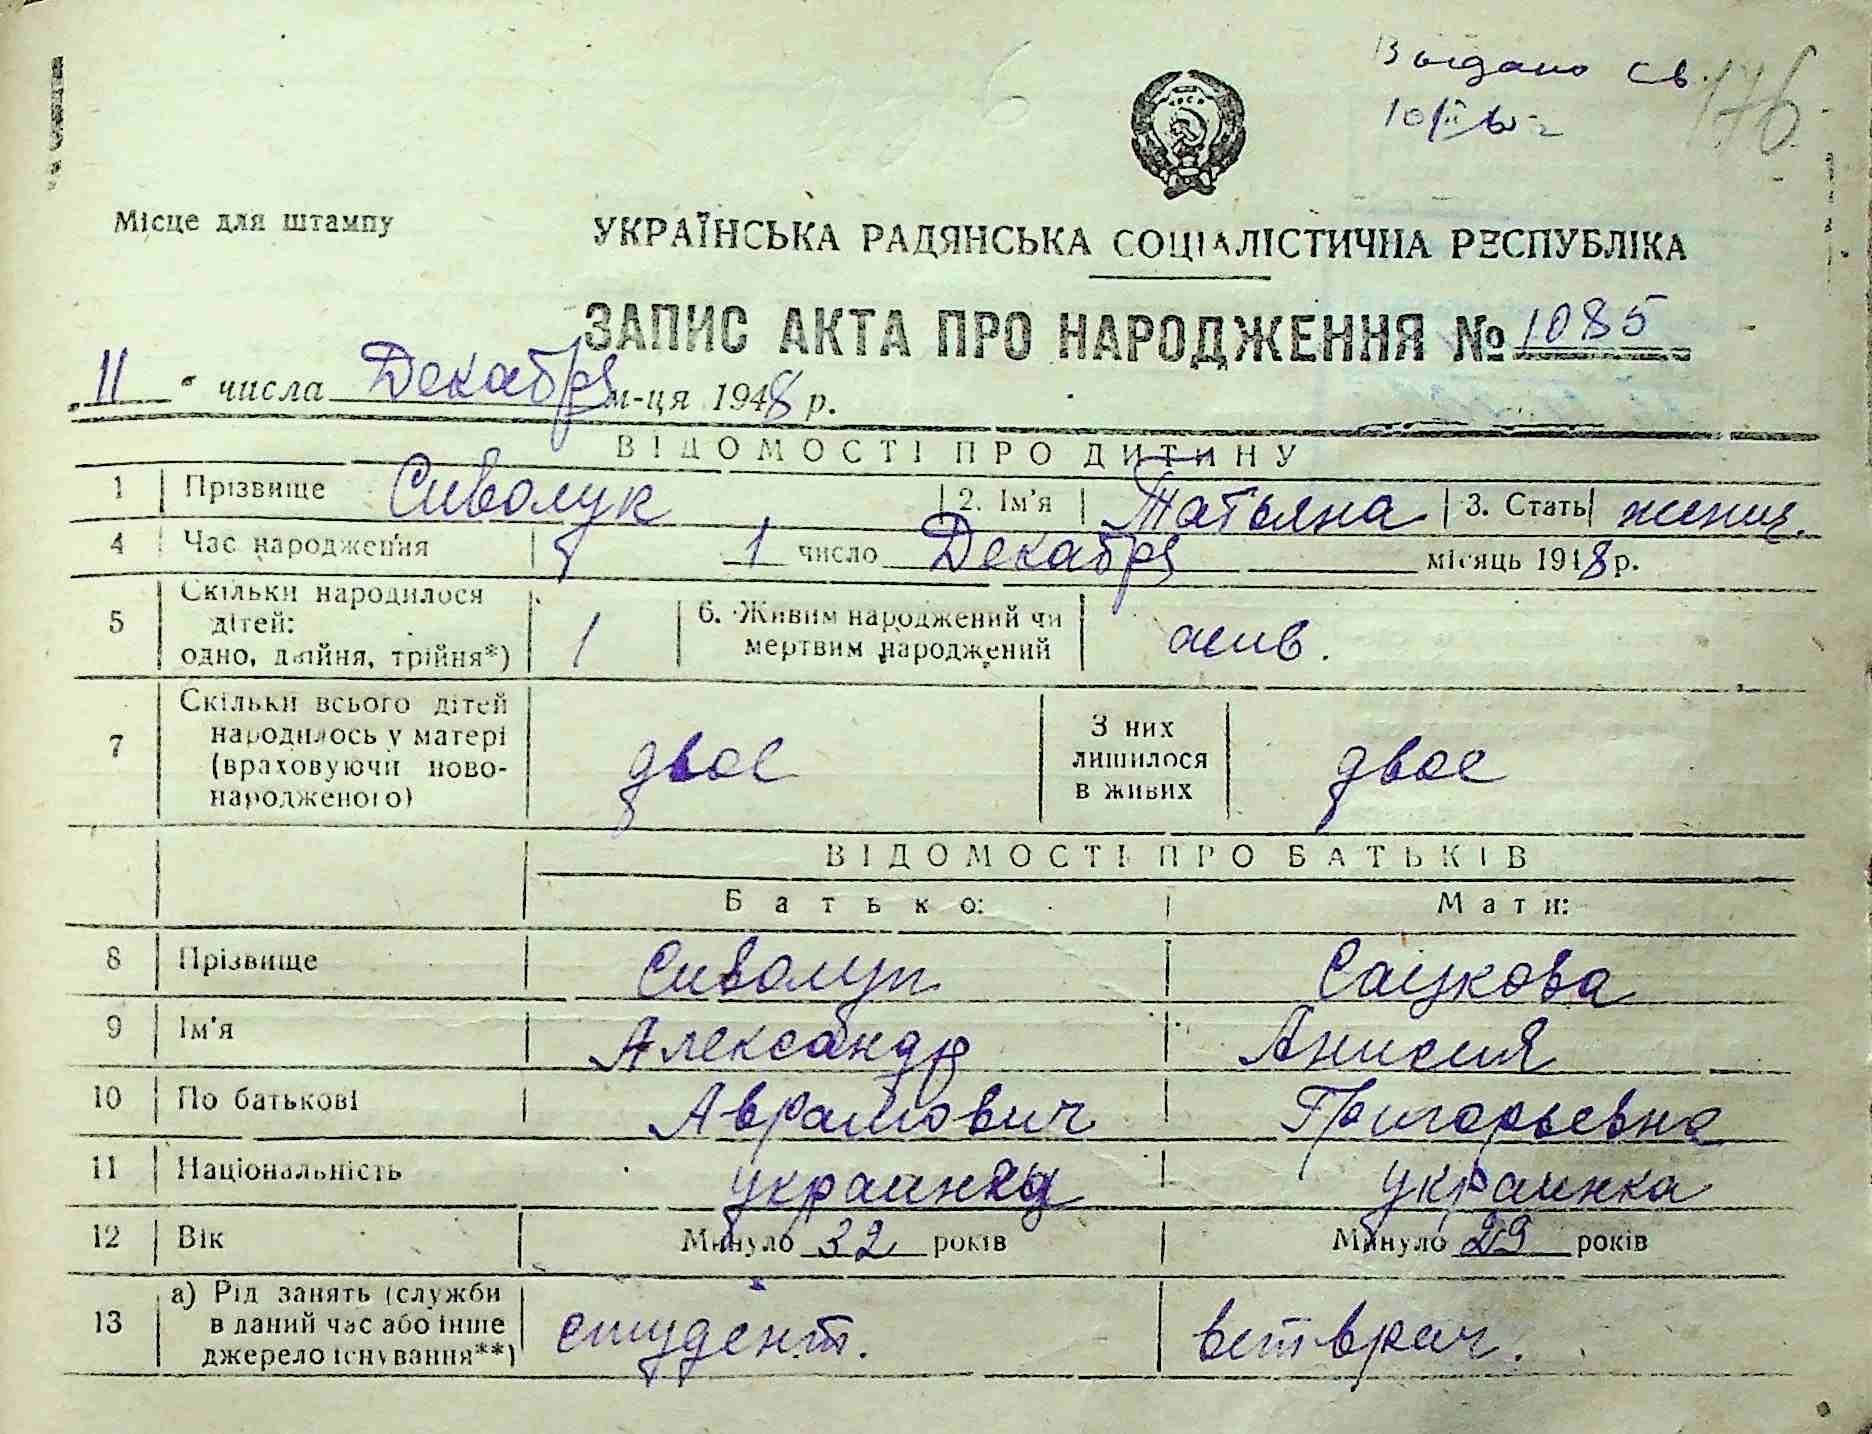 Выдано св.
176
Місце для штампу
УКРАЇНСЬКА РАДЯНСЬКА СОЦІАЛІСТИЧНА РЕСПУБЛІКА
ЗАПИС АКТА ПРО НАРОДЖЕННЯ № 1085
„ 11 “ числа Декабря м-ця 1948 р.
ВІДОМОСТІ ПРО ДИТИНУ
1 Прізвище Сиволук 2. Ім'я Татьяна 3. Стать женщ.
4 Час народження 1 число Декабря місяць 1948 р.
5 Скільки народилося дітей: одно, двійня, трійня*) 1 6. Живим народжений чи мертвим народжений жив.
7 Скільки всього дітей народилось у матері (враховуючи новонародженого) двое З них лишилося в живих двое
ВІДОМОСТІ ПРО БАТЬКІВ
Батько: Мати:
8 Прізвище Сиволуп Сацкова
9 Ім'я Александр Анисия
10 По батькові Аврамович Григорьевна
11 Національність украинец украинка
12 Вік Минуло 32 років Минуло 29 років
13 а) Рід занять (служби в даний час або інше джерело існування**) студент. ветврач.